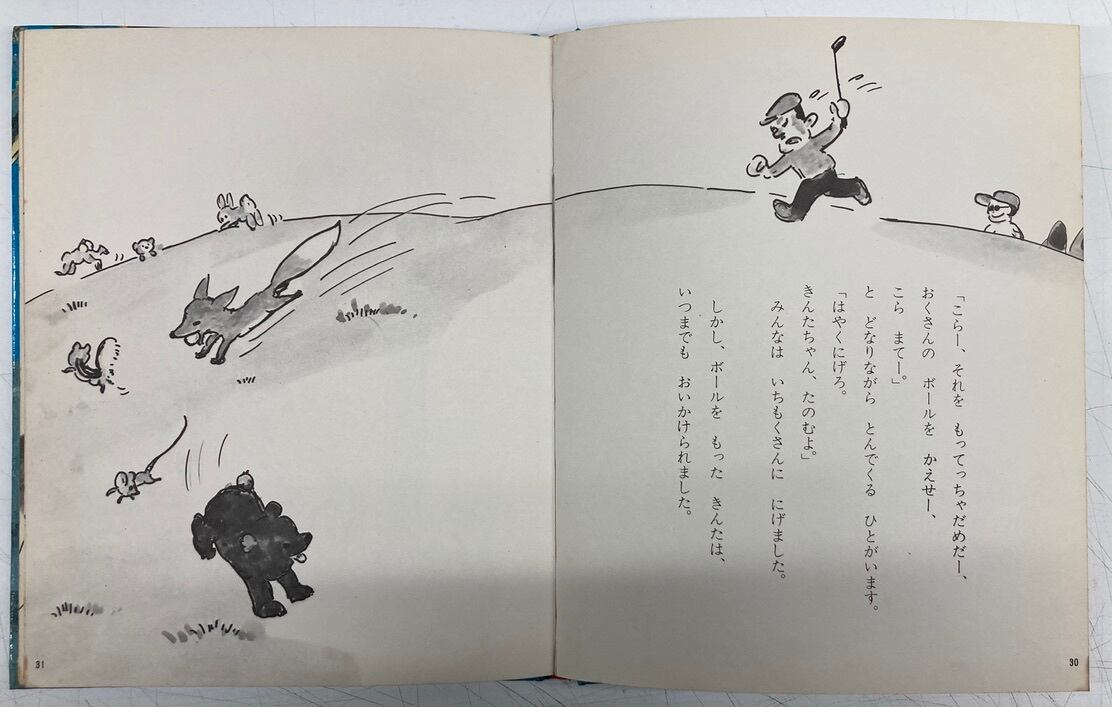 「こらー、それを もってっちゃだめだー、
おくさんの ボールを かえせー、
こら まてー。」
と どなりながら とんでくる ひとがいます。
「はやくにげろ。
きんたちゃん、たのむよ。」
みんなは いちもくさんに にげました。
しかし、ボールを もった きんたは、
いつまでも おいかけられました。
30
31